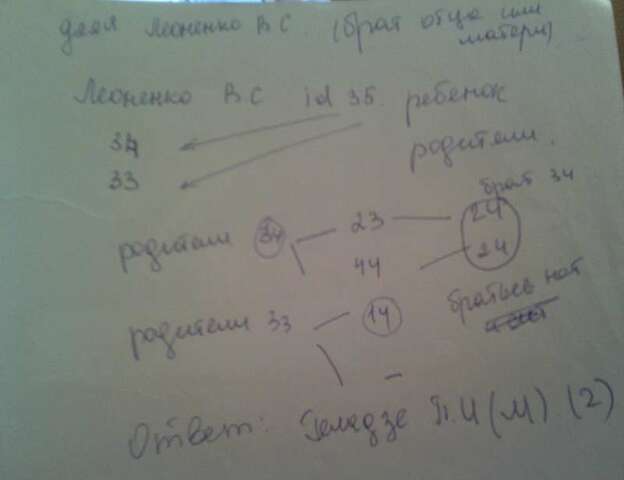 дядя Леоненко В С. (брат отца или
матери)
Леоненко В С id 35. ребенок
34
33
родители.
брат 34
родители 34 23 24
44 24
родители 33 14 братьев нет
-
Ответ: Геладзе П.И (М) (2)